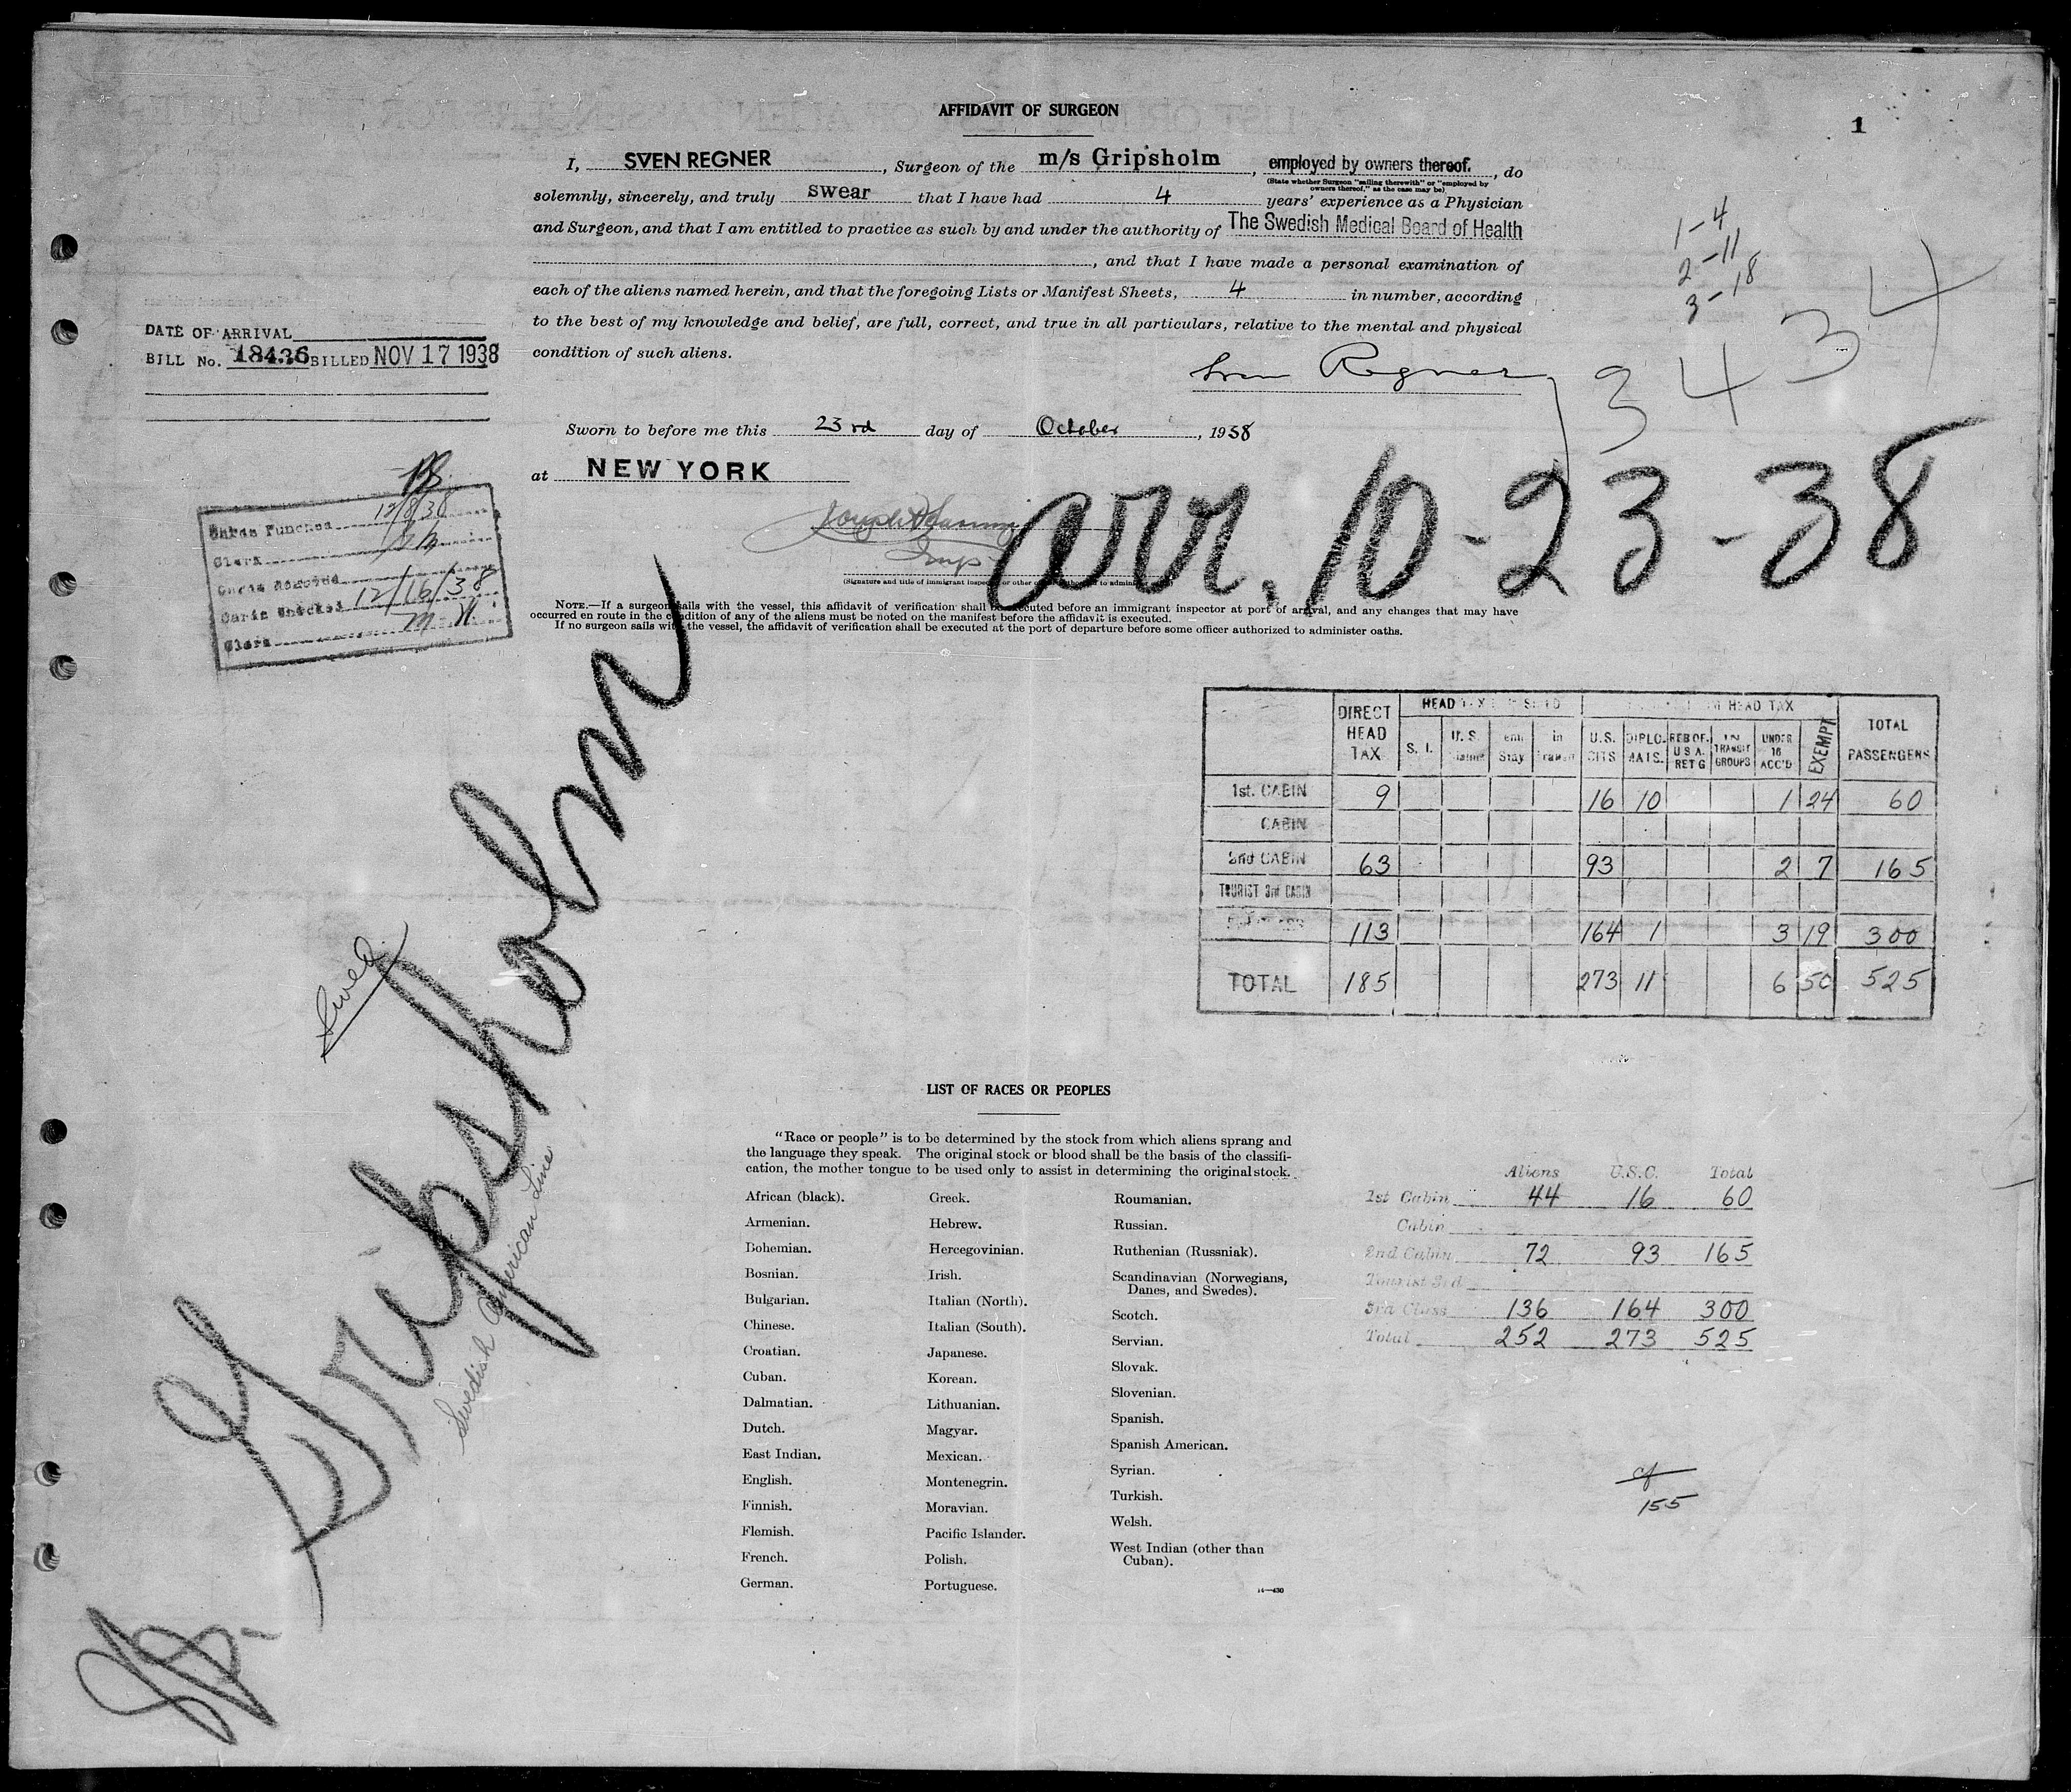 AFFIDAVIT OF SURGEON
1
I, SVEN REGNER, Surgeon of the m/s Gripsholm, employed by owners thereof., do
(State whether Surgeon "sailing therewith" or "employed by owners thereof," as the case may be)
solemnly, sincerely, and truly swear that I have had 4 years' experience as a Physician
and Surgeon, and that I am entitled to practice as such by and under the authority of The Swedish Medical Board of Health
, and that I have made a personal examination of
each of the aliens named herein, and that the foregoing Lists or Manifest Sheets, 4 in number, according
to the best of my knowledge and belief, are full, correct, and true in all particulars, relative to the mental and physical
condition of such aliens.
Sven Regner
1-4
2-11
3-18
3 4 3 4
DATE OF ARRIVAL
BILL No. 18436 BILLED NOV 17 1938
Sworn to before me this 23rd day of October, 1938
at NEW YORK
arr. 10-23-38
Insp
12/8/38
Clerk
Cards Checked 12/16/38
Clerk M.H.
NOTE.—If a surgeon sails with the vessel, this affidavit of verification shall be executed before an immigrant inspector at port of arrival, and any changes that may have
occurred en route in the condition of any of the aliens must be noted on the manifest before the affidavit is executed.
If no surgeon sails with the vessel, the affidavit of verification shall be executed at the port of departure before some officer authorized to administer oaths.
Gripsholm
Swed.
Swedish American Line
DIRECT HEAD TAX S. I. U. S. in U.S. CITS DIPLO-MATS. RES OF. U S A. RET G IN TRANSIT GROUPS UNDER 16 ACC'D EXEMPT TOTAL PASSENGERS
HEAD TAX
1st. CABIN 9 16 10 1 24 60
CABIN
2nd CABIN 63 93 2 7 165
TOURIST 3rd CABIN
113 164 1 3 19 300
TOTAL 185 273 11 6 50 525
LIST OF RACES OR PEOPLES
"Race or people" is to be determined by the stock from which aliens sprang and
the language they speak. The original stock or blood shall be the basis of the classifi-
cation, the mother tongue to be used only to assist in determining the original stock.
African (black).
Armenian.
Bohemian.
Bosnian.
Bulgarian.
Chinese.
Croatian.
Cuban.
Dalmatian.
Dutch.
East Indian.
English.
Finnish.
Flemish.
French.
German.
Greek.
Hebrew.
Hercegovinian.
Irish.
Italian (North).
Italian (South).
Japanese.
Korean.
Lithuanian.
Magyar.
Mexican.
Montenegrin.
Moravian.
Pacific Islander.
Polish.
Portuguese.
Roumanian.
Russian.
Ruthenian (Russniak).
Scandinavian (Norwegians,
Danes, and Swedes).
Scotch.
Servian.
Slovak.
Slovenian.
Spanish.
Spanish American.
Syrian.
Turkish.
Welsh.
West Indian (other than
Cuban).
14—430
Aliens U.S.C. Total
1st Cabin 44 16 60
Cabin
2nd Cabin 72 93 165
Tourist 3rd
3rd Class 136 164 300
Total 252 273 525
155